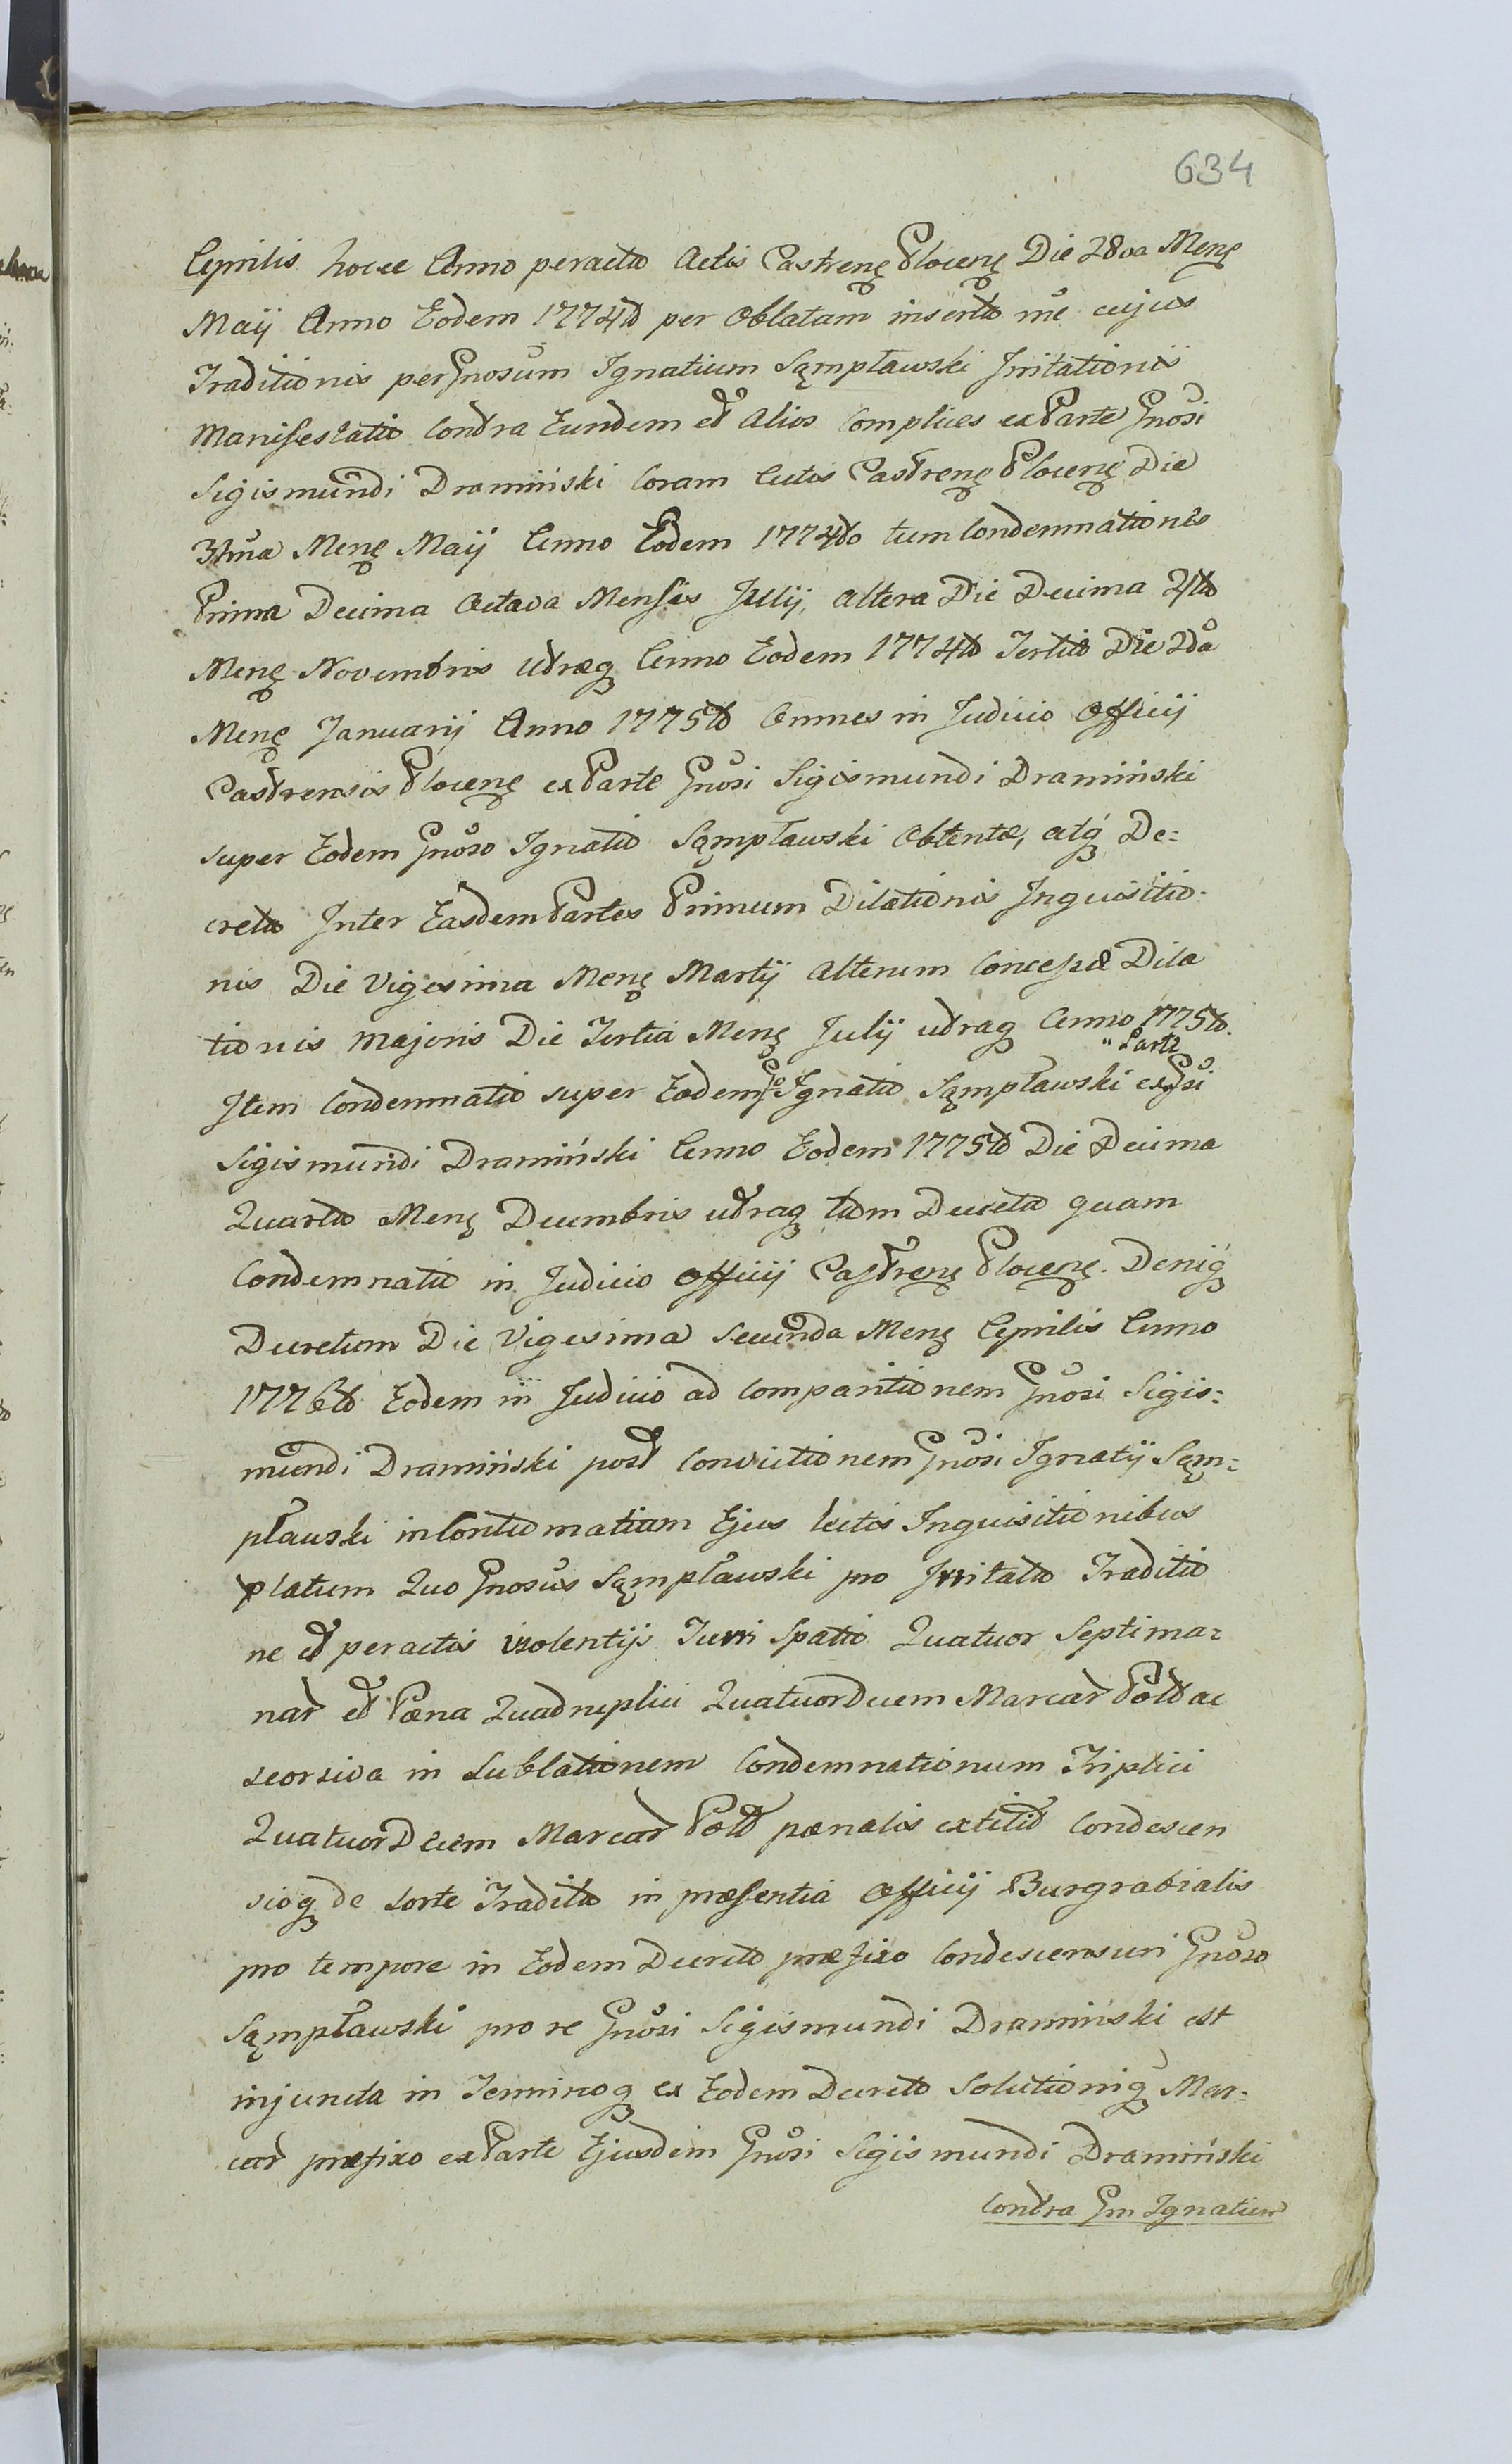 634
Aprilis hocce Anno peracta Actis Castrenẽ Plocenẽ Die 28va Menẽ
Maij Anno Eodem 1774to per Oblatam inserta nẽ cujus
Traditionis per Gnosum Ignatium Sąmpławski Irritationis
Manifestatio Contra Eundem et Alios Complices ex Parte Gnosi
Sigismundi Dramiński Coram Actis Castrenẽ Plocenẽ Die
31ma Menẽ Maij Anno Eodem 1774to tum Condemnationes
Prima Decima Octava Mensis Julij, altera Die Decima 4ta
Menẽ Novembris utraeq Anno Eodem 1774to Tertia Die 2da
Menẽ Januarij Anno 1775to Omnes in Judicio Officij
Castrensis Plocenẽ ex Parte Gnosi Sigismundi Dramiński
super Eodem Gnoso Ignatio Sąmpławski Obtentae, atq De=
creta Inter Easdem Partes Primum Dilationis Inquisitio-
nis Die Vigesima Menẽ Martij Alterum Concessae Dila
tionis Majoris Die Tertia Menẽ Julij utraq Anno 1775to.
Item Condemnatio super Eodem Gso Ignatio Sąmpławski ex "Parte Gsi
Sigismundi Dramiński Anno Eodem 1775to Die Decima
Quarta Menẽ Decembris utraq tam Decreta quam
Condemnatio in Judicio Officij Castrenẽ Plocenẽ. Deniq
Decretum Die Vigesima Secunda Menẽ Aprilis Anno
1776to Eodem in Judicio ad Comparitionem Gnosi Sigis=
mundi Dramiński post Convictionem Gnosi Ignatij Sąm=
pławski in Contumatiam Ejus lectis Inquisitionibus
platum Quo Gnosus Sąmpławski pro Irritata Traditio
ne et peractis violentijs Turri Spatio Quatuor Septima=
nar et Paena Quadruplici Quatuor Decem Marcar Polt ac
seorsiva in Sublationem Condemnationum Triplici
Quatuor Decem Marcar Polt paenalis extitit Condescen
sioq de Sorte Tradita in praesentia Officij Burgrabialis
pro tempore in Eodem Decreto praefixo Condescensuri Gnoso
Sąmpławski pro re Gnosi Sigismundi Dramiński est
injuncta in Terminoq ex Eodem Decreto Solutioniq Mar-
car praefixo ex Parte Ejusdem Gnosi Sigismundi Dramiński
Contra Gm Ignatium